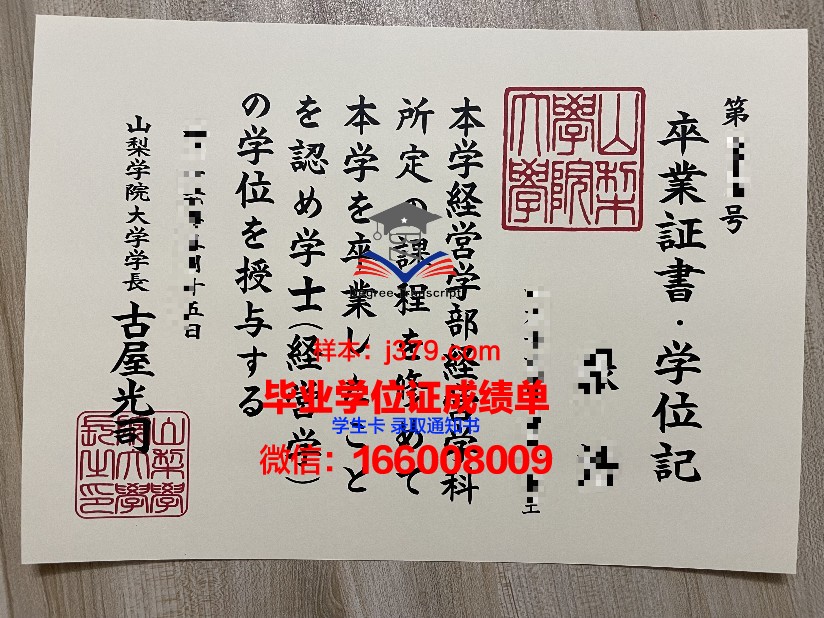 第
号
卒業証書・学位記
山梨
學院
大學
本学経営学部経営学科
所定の課程を修めて
本学を卒業したこと
を認め学士(経営学)
の学位を授与する
十五日
山梨学院大学学長 古屋光司
山梨學
院大學
長之印
Degree Transcript
样本：j379.com
毕业学位证成绩单
学生卡 录取通知书
微信：166008009